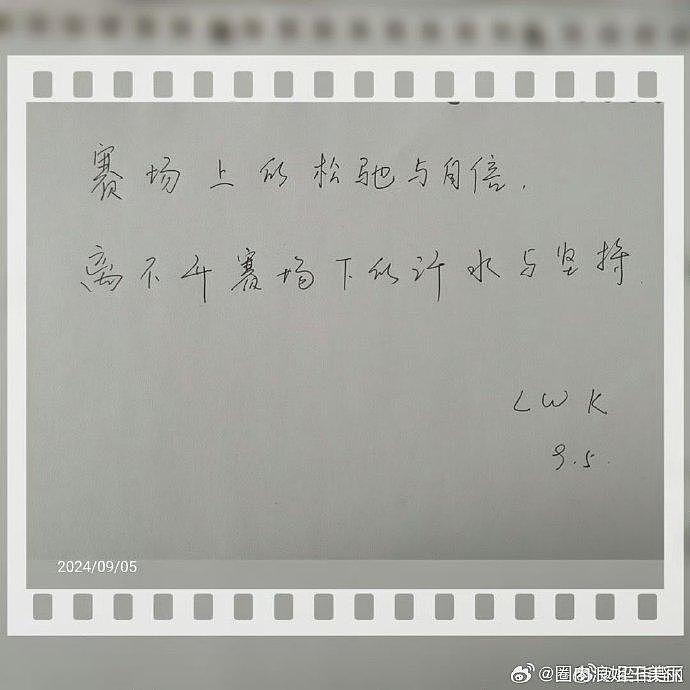 赛场上的松驰与自信，
离不开赛场下的汗水与坚持
LWK
9.5.
2024/09/05